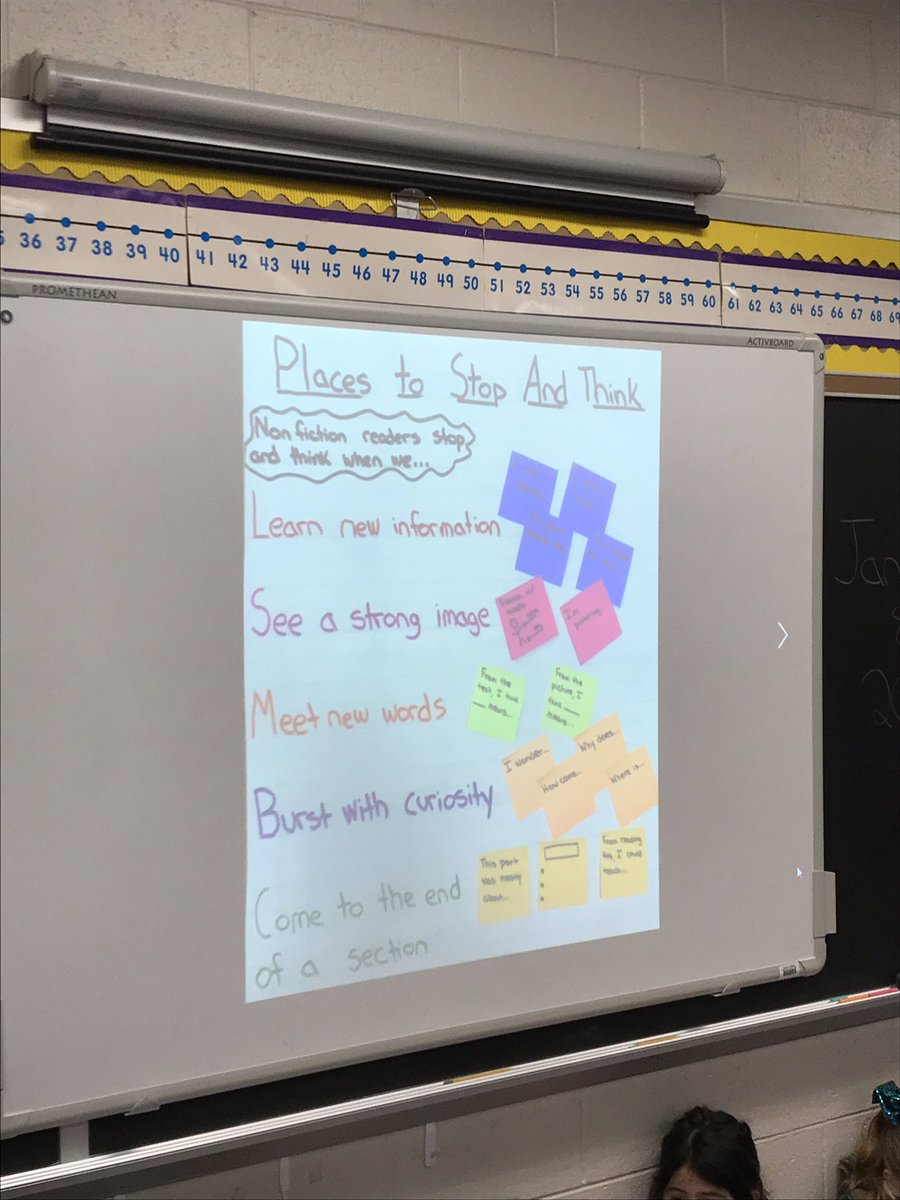 36 37 38 39 40 41 42 43 44 45 46 47 48 49 50 51 52 53 54 55 56 57 58 59 60 61 62 63 64 65 66 67 68 69
PROMETHEAN
ACTIVBOARD
Places to Stop And Think
Nonfiction readers stop
and think when we...
Learn new information
See a strong image
Sketch w/
labels
I'm
picturing...
Meet new words
From the
text, I think
____ means...
From the
picture, I
think ____
means...
Burst with curiosity
I wonder...
How come...
Why does...
Where is...
Come to the end
of a section
This part
was mostly
about...
From reading
this, I could
teach...
Jan
20